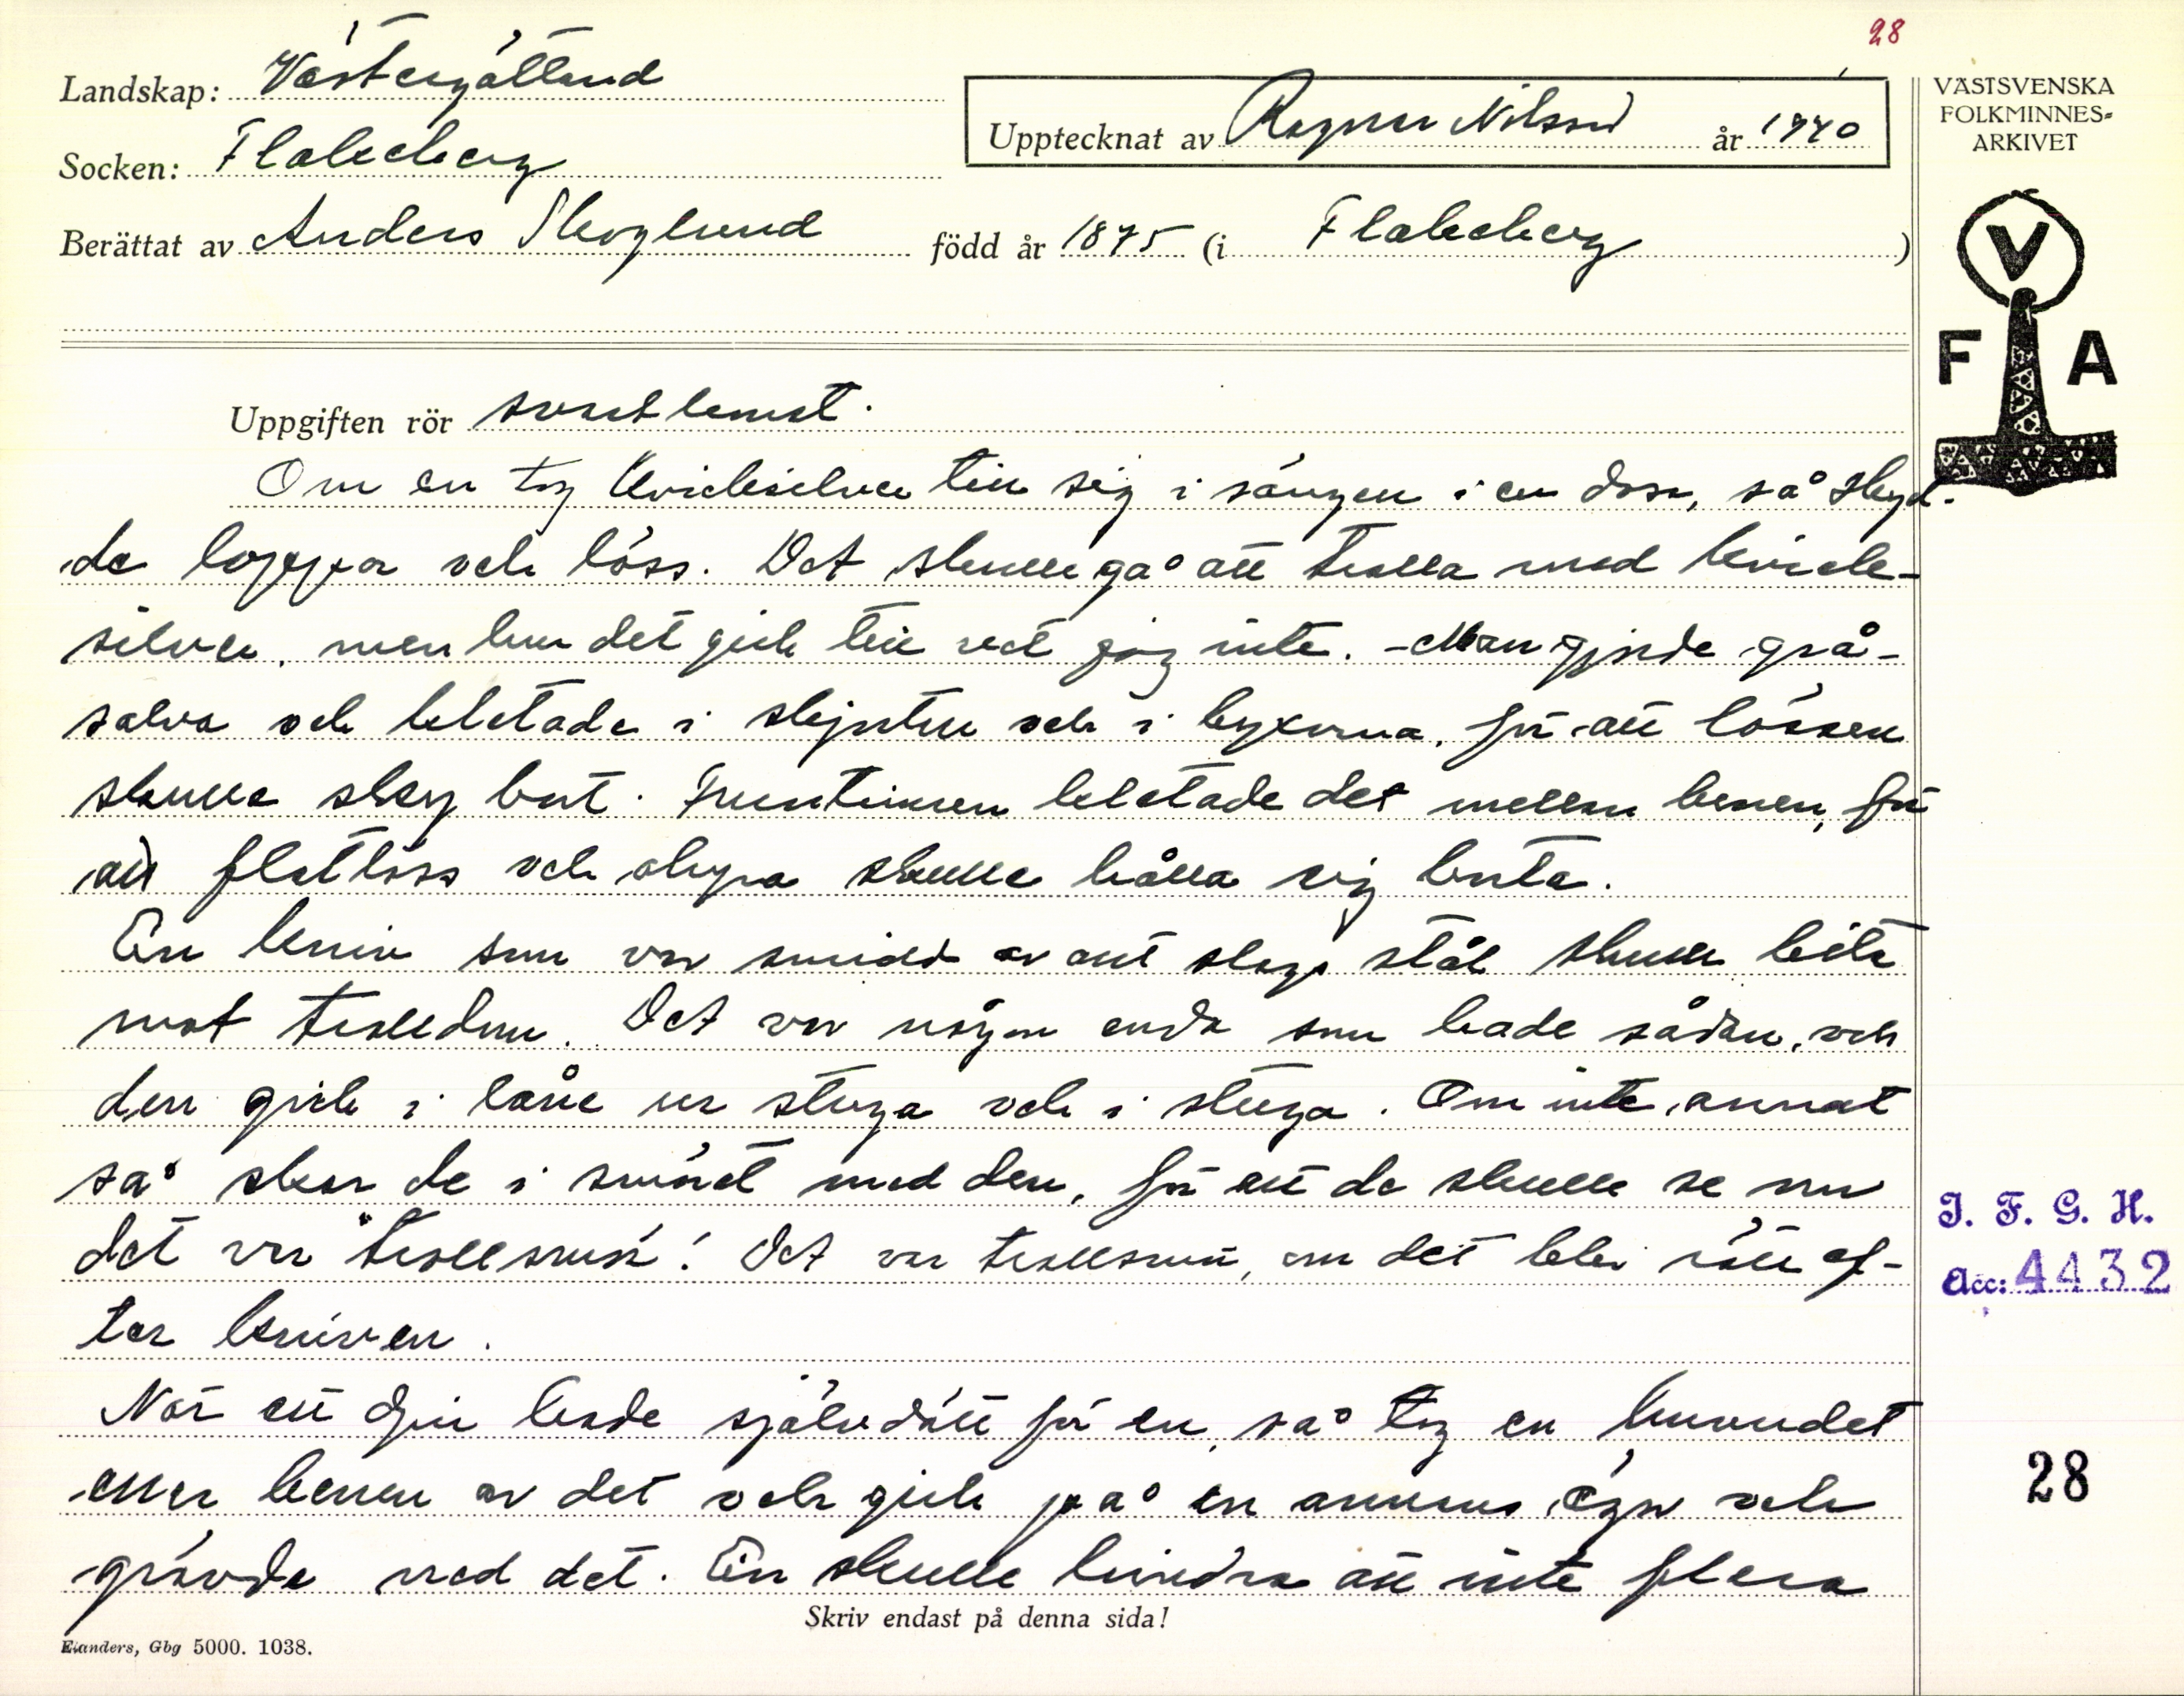 28
Landskap: Västergötland
Socken: Flakeberg
Upptecknat av Ragnar Nilsson år 1940
Berättat av Anders Skoglund född år 1875 (i Flakeberg)
VÄSTSVENSKA
FOLKMINNES=
ARKIVET
V
F A
Uppgiften rör svartkonst.
Om en tog kvicksilver till sig i sängen i en dosa, så skyd-
de loppor och löss. Det skulle gå att trolla med kvick-
silver, men hur det gick till vet jag inte. - Man gjorde grå-
salva och kletade i skjortan och i byxorna, för att lössen
skulle sky bort. Fruntimren kletade det mellan benen, för
att flatlöss och skapa skulle hålla sig borta.
En kniv som var smidd av ont slags stål skulle bita
mot trolldom. Det var någon enda som hade sådan, och
den gick i lån ur stuga och i stuga. Om inte annat
så skar de i smöret med den, för att de skulle se om
det var "trollsmör". Det var trollsmör, om det blev rött ef-
ter kniven.
När ett djur hade självdött för en, så tog en huvudet
eller benen av det och gick på en annans ägor och
grävde ned det. En skulle hindra att inte flera
Skriv endast på denna sida!
Elanders, Gbg 5000. 1038.
I. F. G. H.
Acc: 4432
28